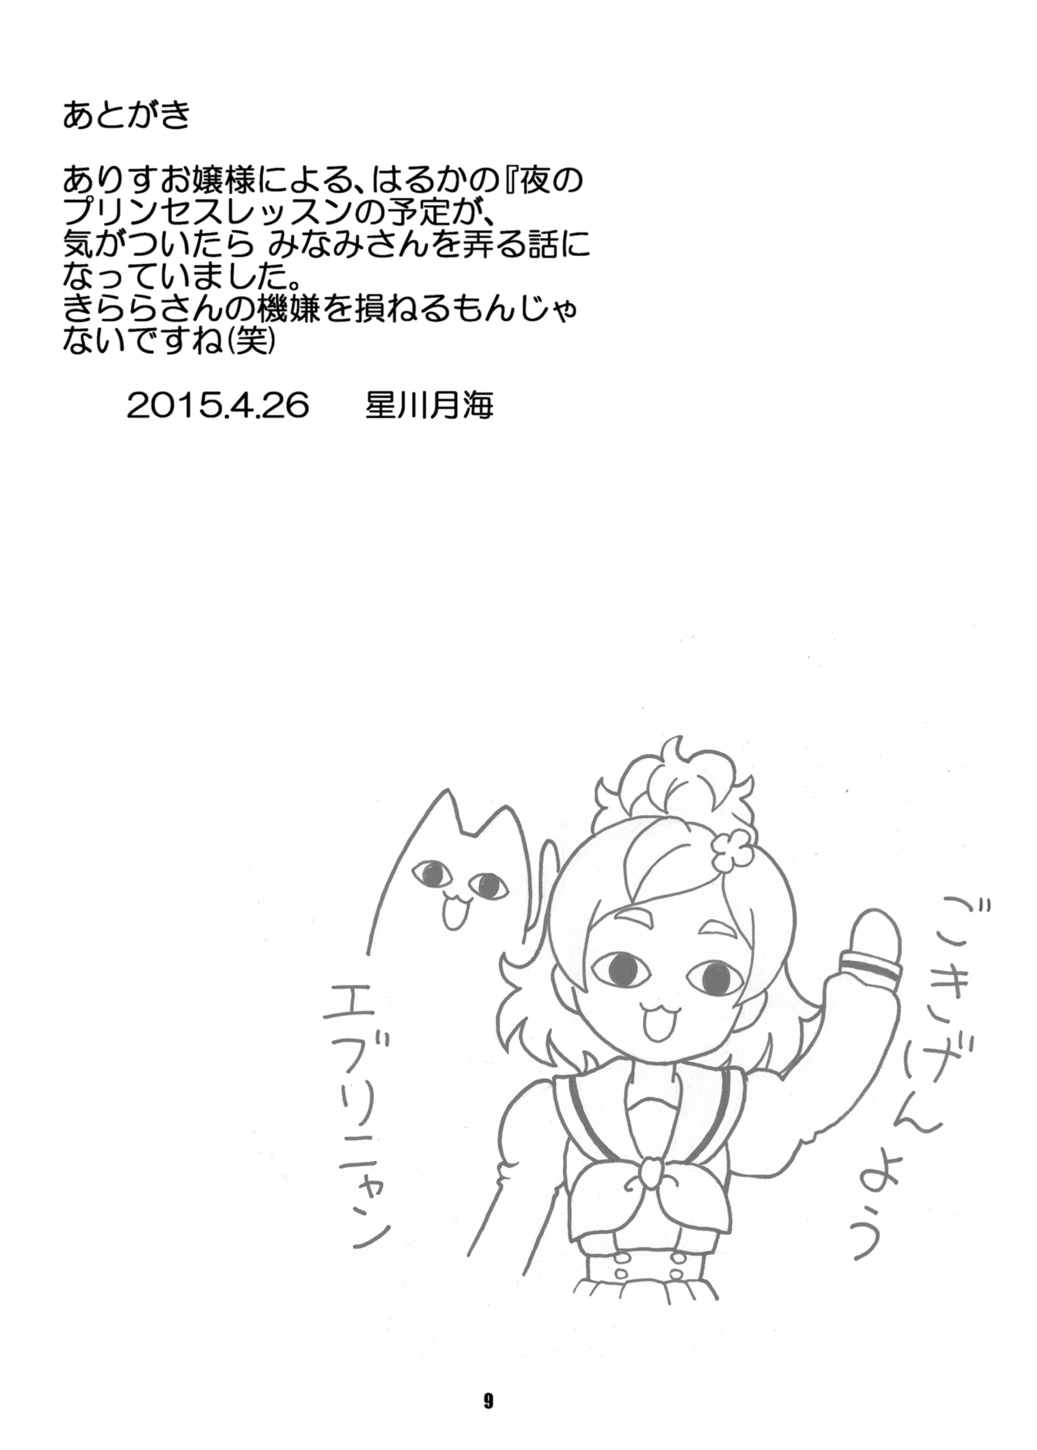 あとがき
ありすお嬢様による、はるかの『夜の
プリンセスレッスンの予定が、
気がついたら みなみさんを弄る話に
なっていました。
きららさんの機嫌を損ねるもんじゃ
ないですね(笑)
2015.4.26 星川月海
ごきげんよう
エブリニャン
9